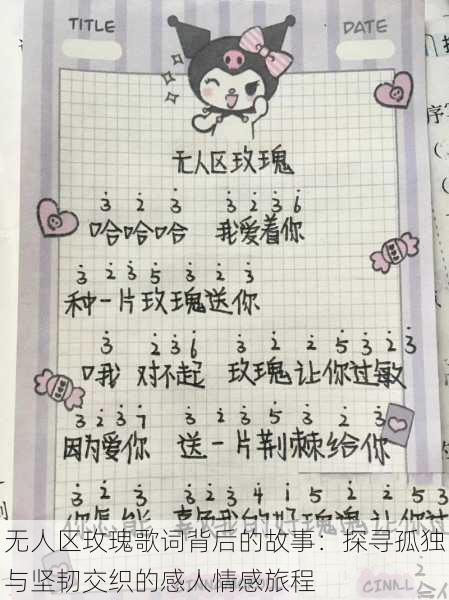 TITLE DATE
无人区玫瑰
3 2 3 3 2 3 6
哈哈哈 我爱着你
3 2 3 5 3 2 3
种一片玫瑰送你
3 2 3 6 3 2 2 5 3 2 3
哦 对不起 玫瑰让你过敏
3 2 3 7 3 2 3 5 3 2 3
因为爱你 送一片荆棘给你
3 2 3 3 2 3 4 1 5 2 2 5
无人区玫瑰歌词背后的故事：探寻孤独
与坚韧交织的感人情感旅程